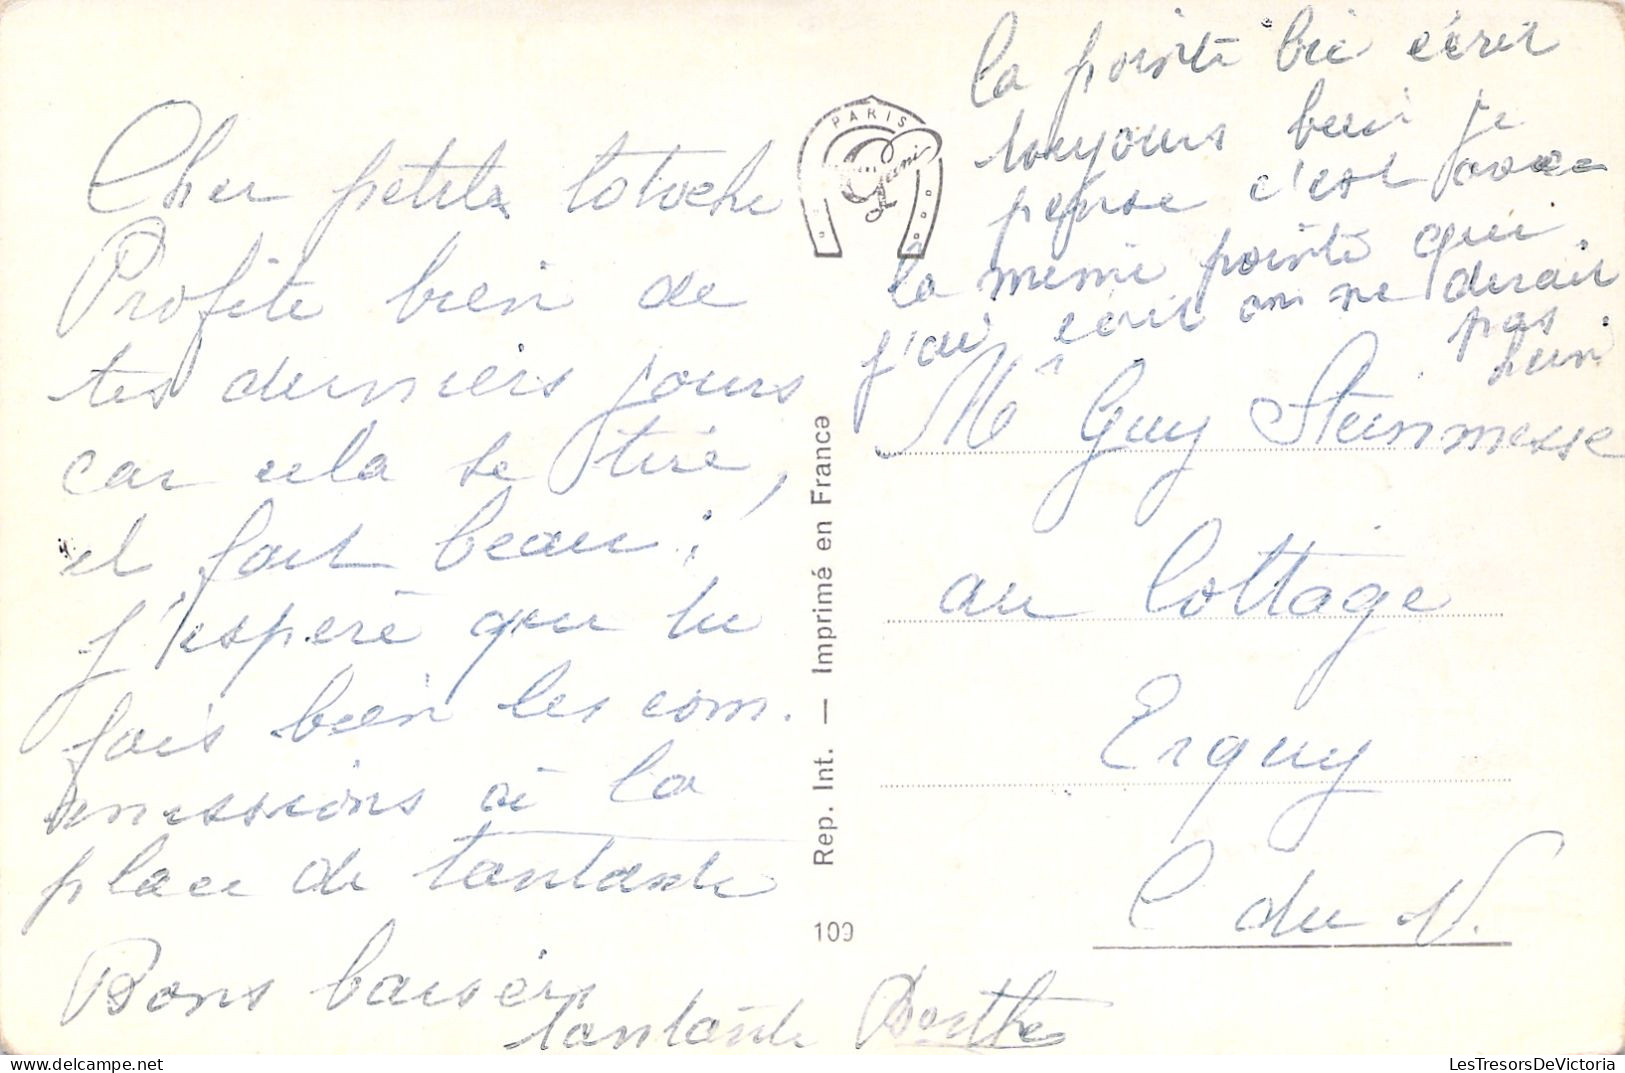 Cher petite totoche
Profite bien de
tes derniers jours
car cela se tire,
il fait beau,
j'espère que tu
fais bien les com.
missions à la
place de tantante
Bons baisers
tantante Berthe
PARIS
la pointe bic écrit
toujours bien je
pense c'est avec
la meme pointe qui
j'ai écrit on ne dirait
pas
hein.
Mr Guy Steinmesse
au Cottage
Erquy
C du N.
Rep. Int. — Imprimé en France
109
LesTresorsDeVictoria